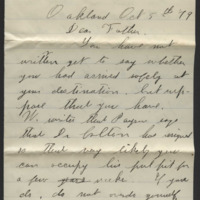 Oakland Oct 5th '79
Dear Father.
You have not
written yet to say whether
you had arrived safely at
your destination, but
pose that you have.
We write that Payson says
that Dr. Colton has signed
so that very likely you
can occupy his pulpit for
a few weeks. If you
do, do not yourself